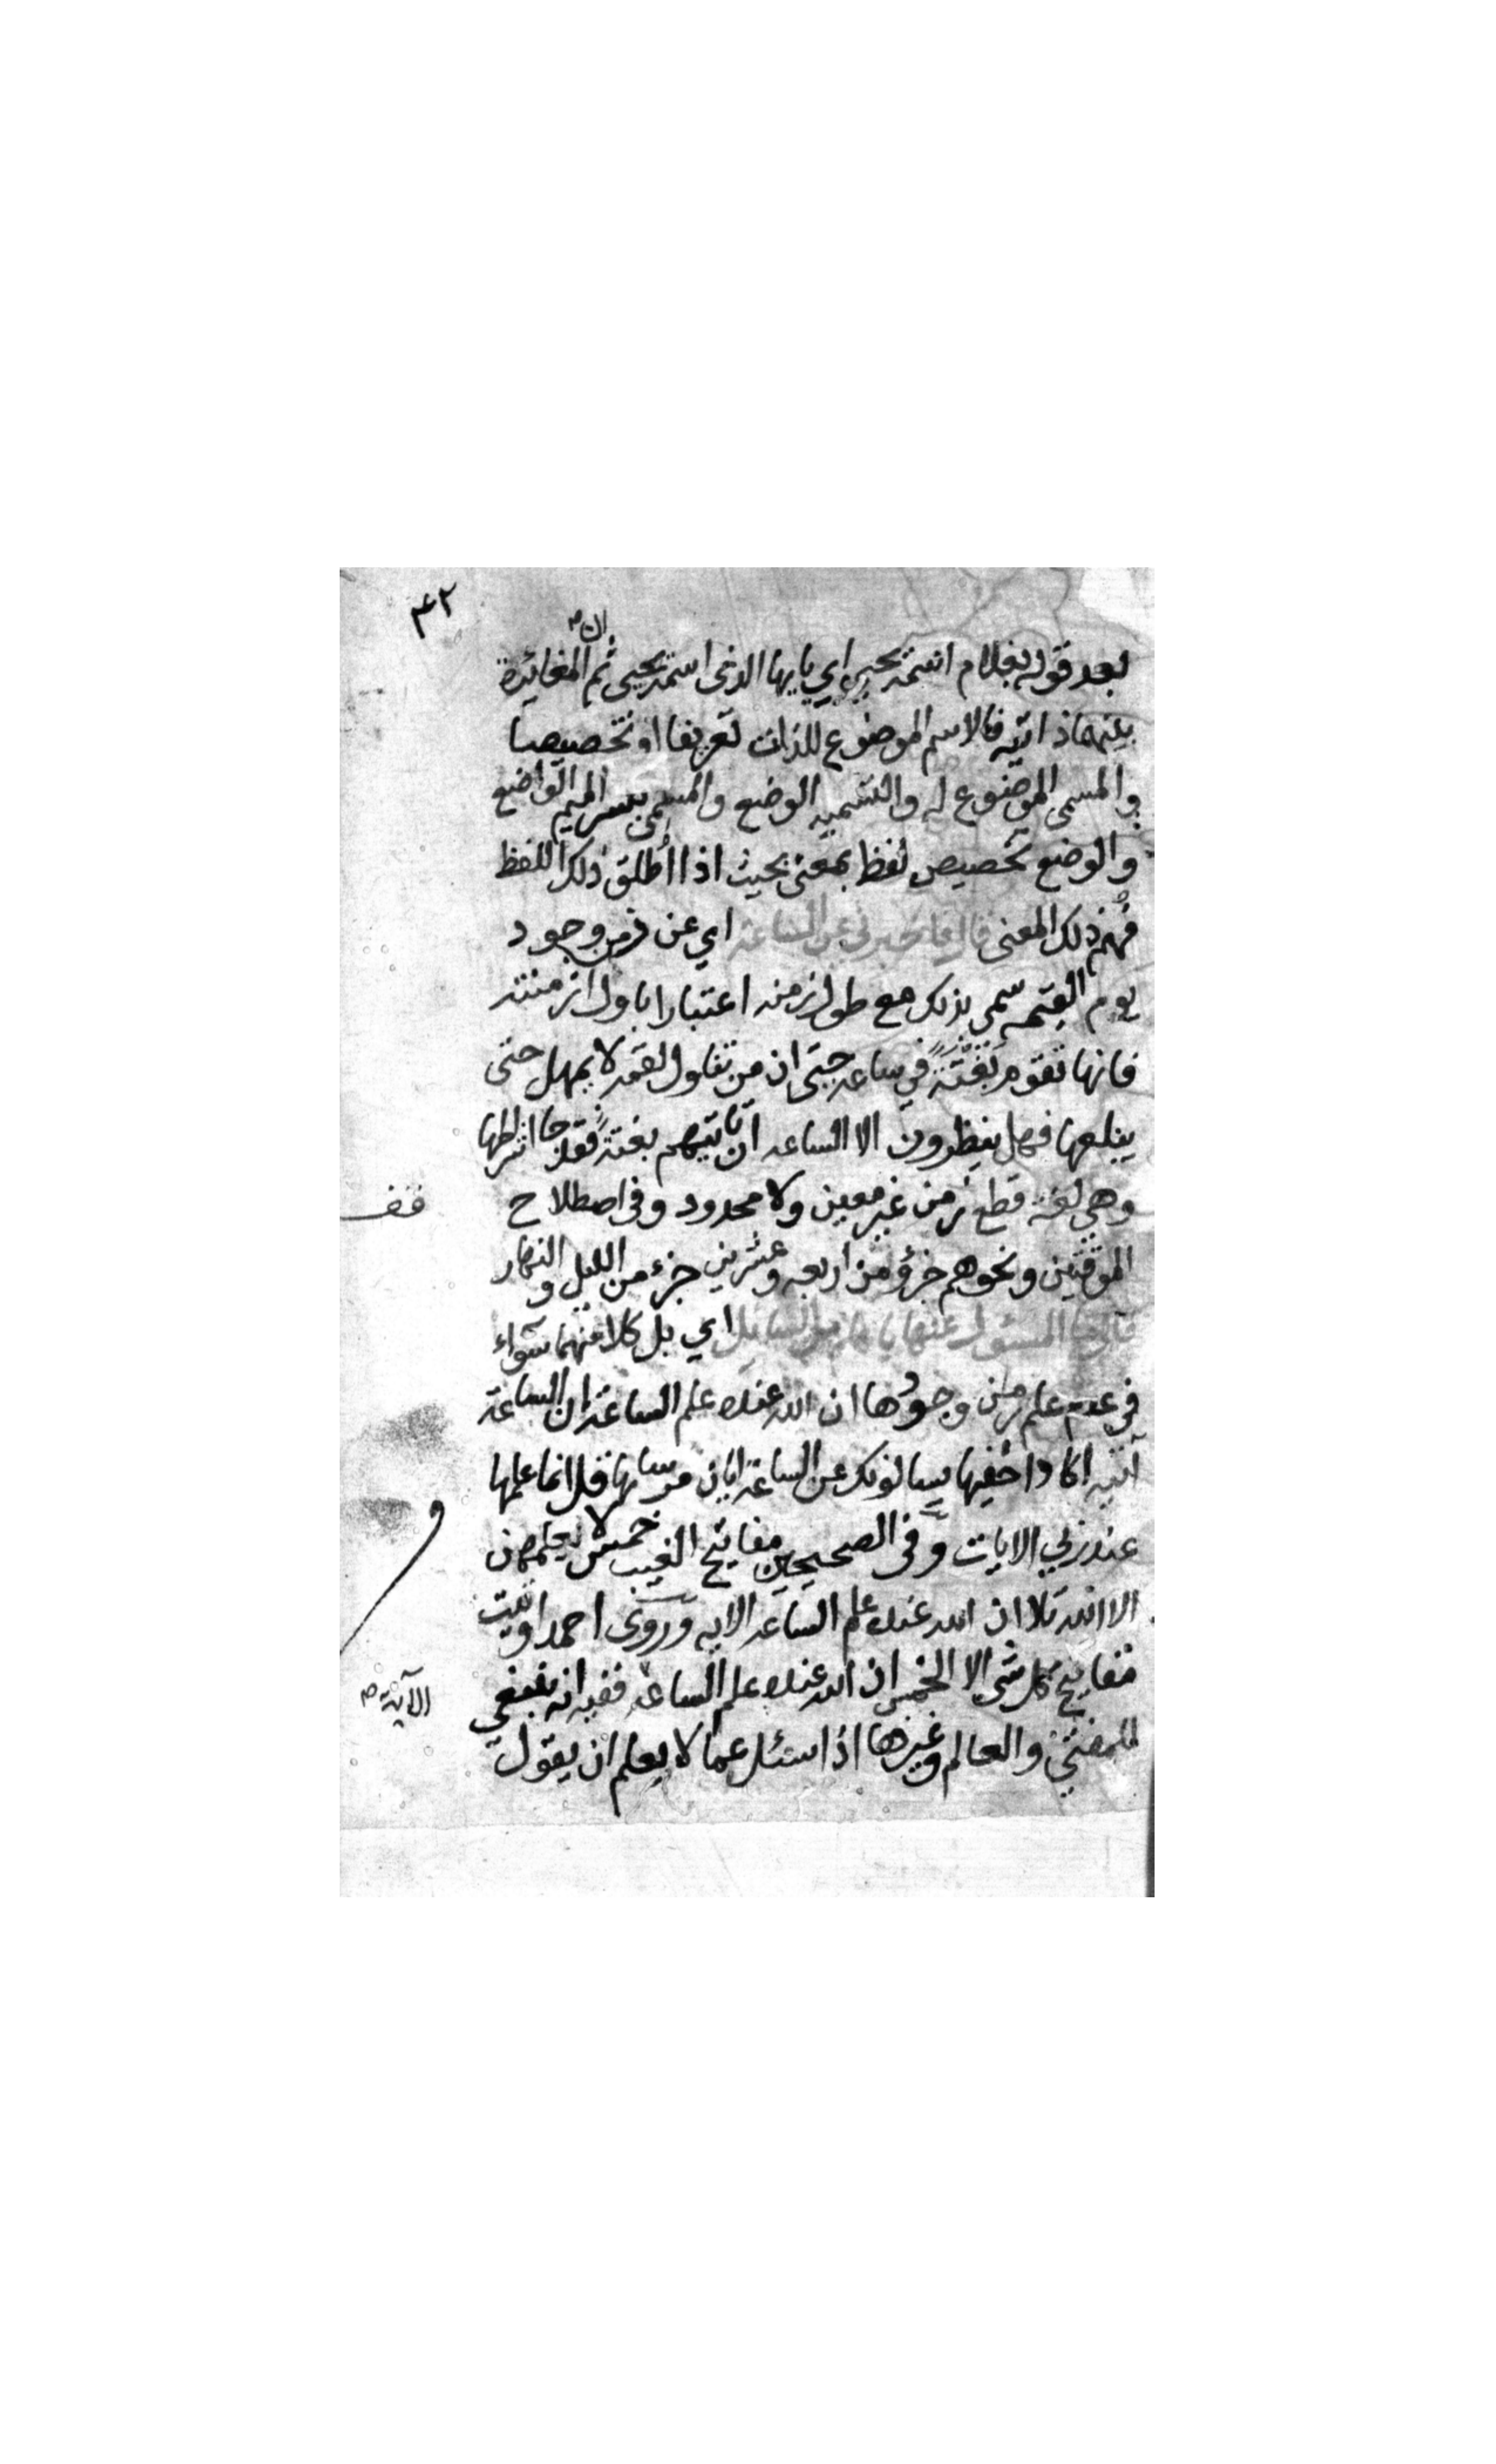 ٤٢
ان
بعد قوله بغلام اسمه يحيى اي يايها الذى اسمه يحيى ثم المغائرة
بينهما ذاتيه فالاسم الموضوع للذات تعريفا او تخصيصا
والمسمى الموضوع له والتسميه الوضع والمسمى بكسر الميم الواضع
والوضع تخصيص لفظ بمعنى بحيث اذا اطلق ذلك اللفظ
فهم ذلك المعنى قال فاخبرني عن الساعة اي عن زمن وجود
يوم القيمه سمي بذلك مع طول زمنه اعتبارا باول ازمنته
فانها تقوم بغتةً في ساعه حتى ان من تناول لقمه لا يمهل حتى
يبلعها فهل ينظرون الا الساعه ان تاتيهم بغتةً فقد جا اشراطها
وهي لغة قطع زمن غير معين ولا محدود وفي اصطلاح
قف
الموقتين ونحوهم جزؤ من اربعه وعشرين جزء من الليل والنهار
قال ما المسئول عنها باعلم من السايل اي بل كلا منهما سواء
في عدم علم زمن وجودها ان الله عنده علم الساعة ان الساعة
آتيه اكاد اخفيها يسالونك عن الساعة ايان مرساها قل انما علمها
عند ربي الايات وفى الصحيحين مفاتيح الغيب خمس لا يعلمهن
الا الله تلا ان الله عنده علم الساعه الايه وروى احمد اوتيت
مفاتيح كل شي الا الخمس ان الله عنده علم الساعه ففيه انه ينبغي
الآية
للمفتي والعالم وغيرها اذا سئل عما لا يعلم ان يقول